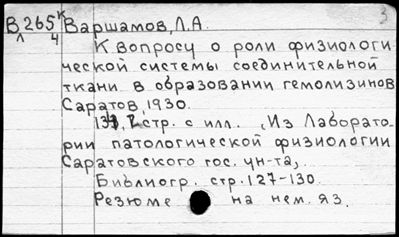 3
В265к Варшамов, Л.А.
л 4
К вопросу о роли физиологи
ческой системы соединительной
ткани в образовании гемолизинов
Саратов, 1930.
стр. с илл. Из Лаборато-
рии патологической физиологии
Саратовского гос. ун-та,
Библиогр. стр. 127-130
Резюме на нем. яз.